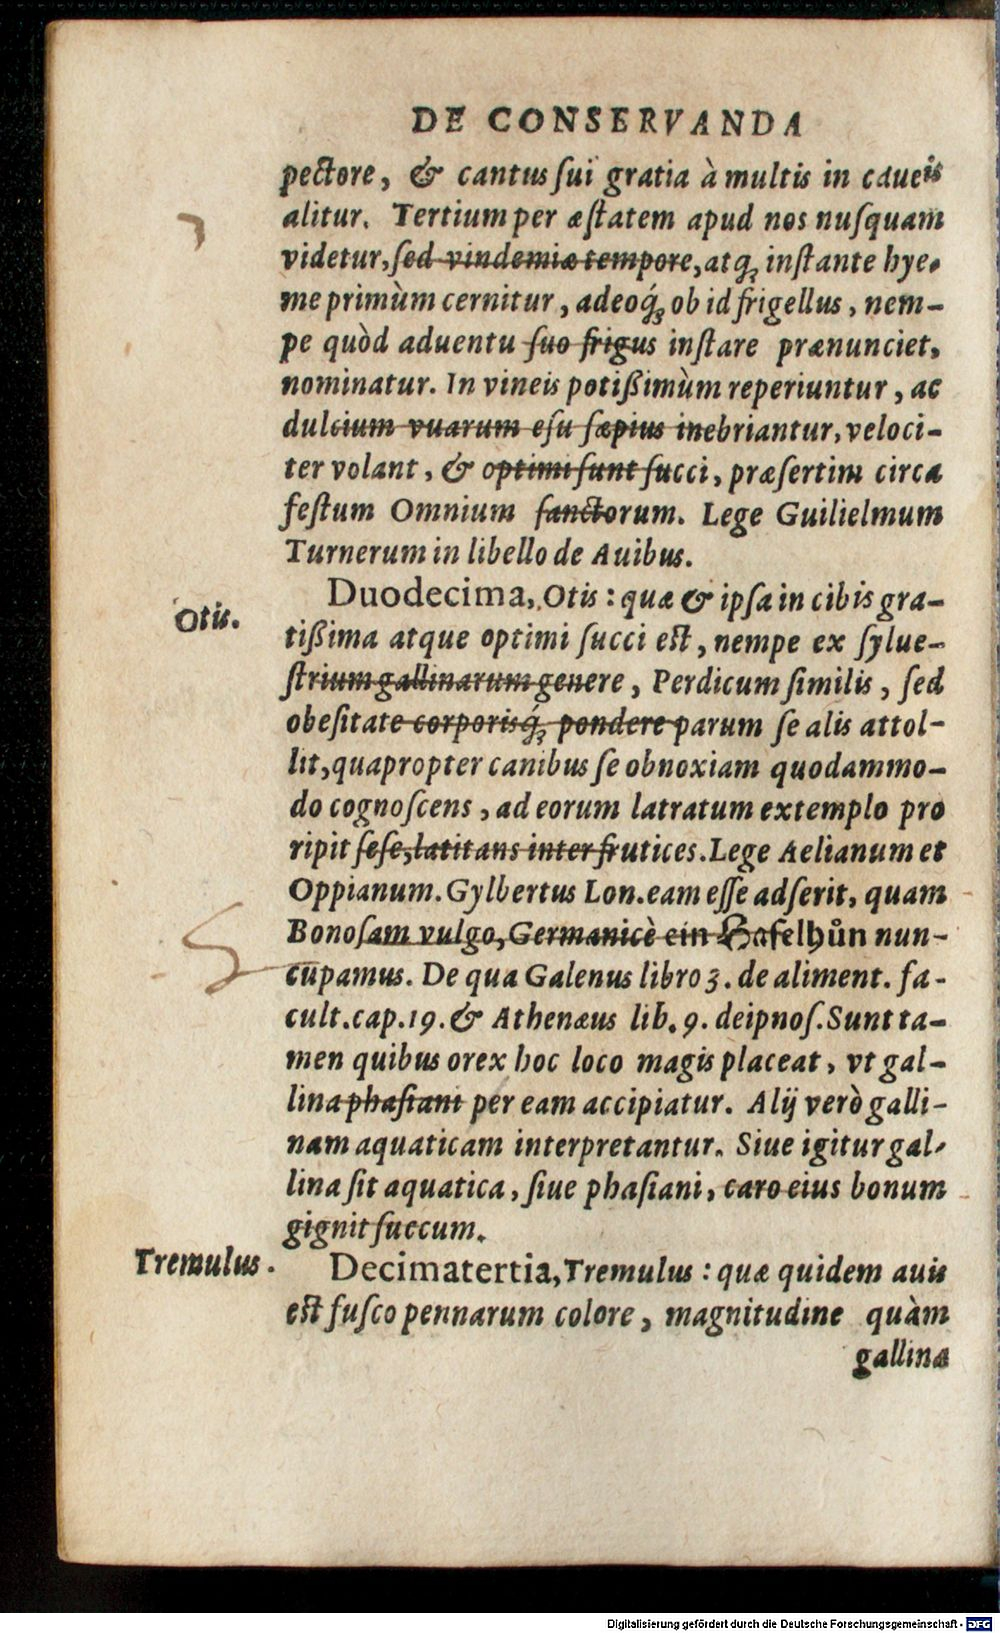 DE CONSERVANDA
pectore, & cantus ſui gratia à multis in caueis
alitur. Tertium per æſtatem apud nos nuſquam
videtur, ſed vindemiæ tempore, atq; inſtante hye-
me primùm cernitur, adeoq́; ob id frigellus, nem-
pe quòd aduentu ſuo frigus inſtare prænunciet,
nominatur. In vineis potißimùm reperiuntur, ac
dulcium vuarum eſu ſæpius inebriantur, veloci-
ter volant, & optimi ſunt ſucci, præſertim circa
feſtum Omnium ſanctorum. Lege Guilielmum
Turnerum in libello de Auibus.
Otis.
Duodecima, Otis: quæ & ipſa in cibis gra-
tißima atque optimi ſucci est, nempe ex ſylue-
ſtrium gallinarum genere, Perdicum ſimilis, ſed
obeſitate corporisq́; pondere parum ſe alis attol-
lit, quapropter canibus ſe obnoxiam quodammo-
do cognoſcens, ad eorum latratum extemplo pro
ripit ſeſe, latitans inter frutices. Lege Aelianum et
Oppianum. Gylbertus Lon. eam eſſe adſerit, quam
Bonoſam vulgo, Germanicè ein Haſelhůn nun-
cupamus. De qua Galenus libro 3. de aliment. fa-
cult. cap. 19. & Athenæus lib. 9. deipnoſ. Sunt ta-
men quibus orex hoc loco magis placeat, vt gal-
lina phaſiani per eam accipiatur. Alij verò galli-
nam aquaticam interpretantur. Siue igitur gal-
lina ſit aquatica, ſiue phaſiani, caro eius bonum
gignit ſuccum.
Tremulus.
Decimatertia, Tremulus: quæ quidem auis
est fuſco pennarum colore, magnitudine quàm
gallinæ
Digitalisierung gefördert durch die Deutsche Forschungsgemeinschaft - DFG